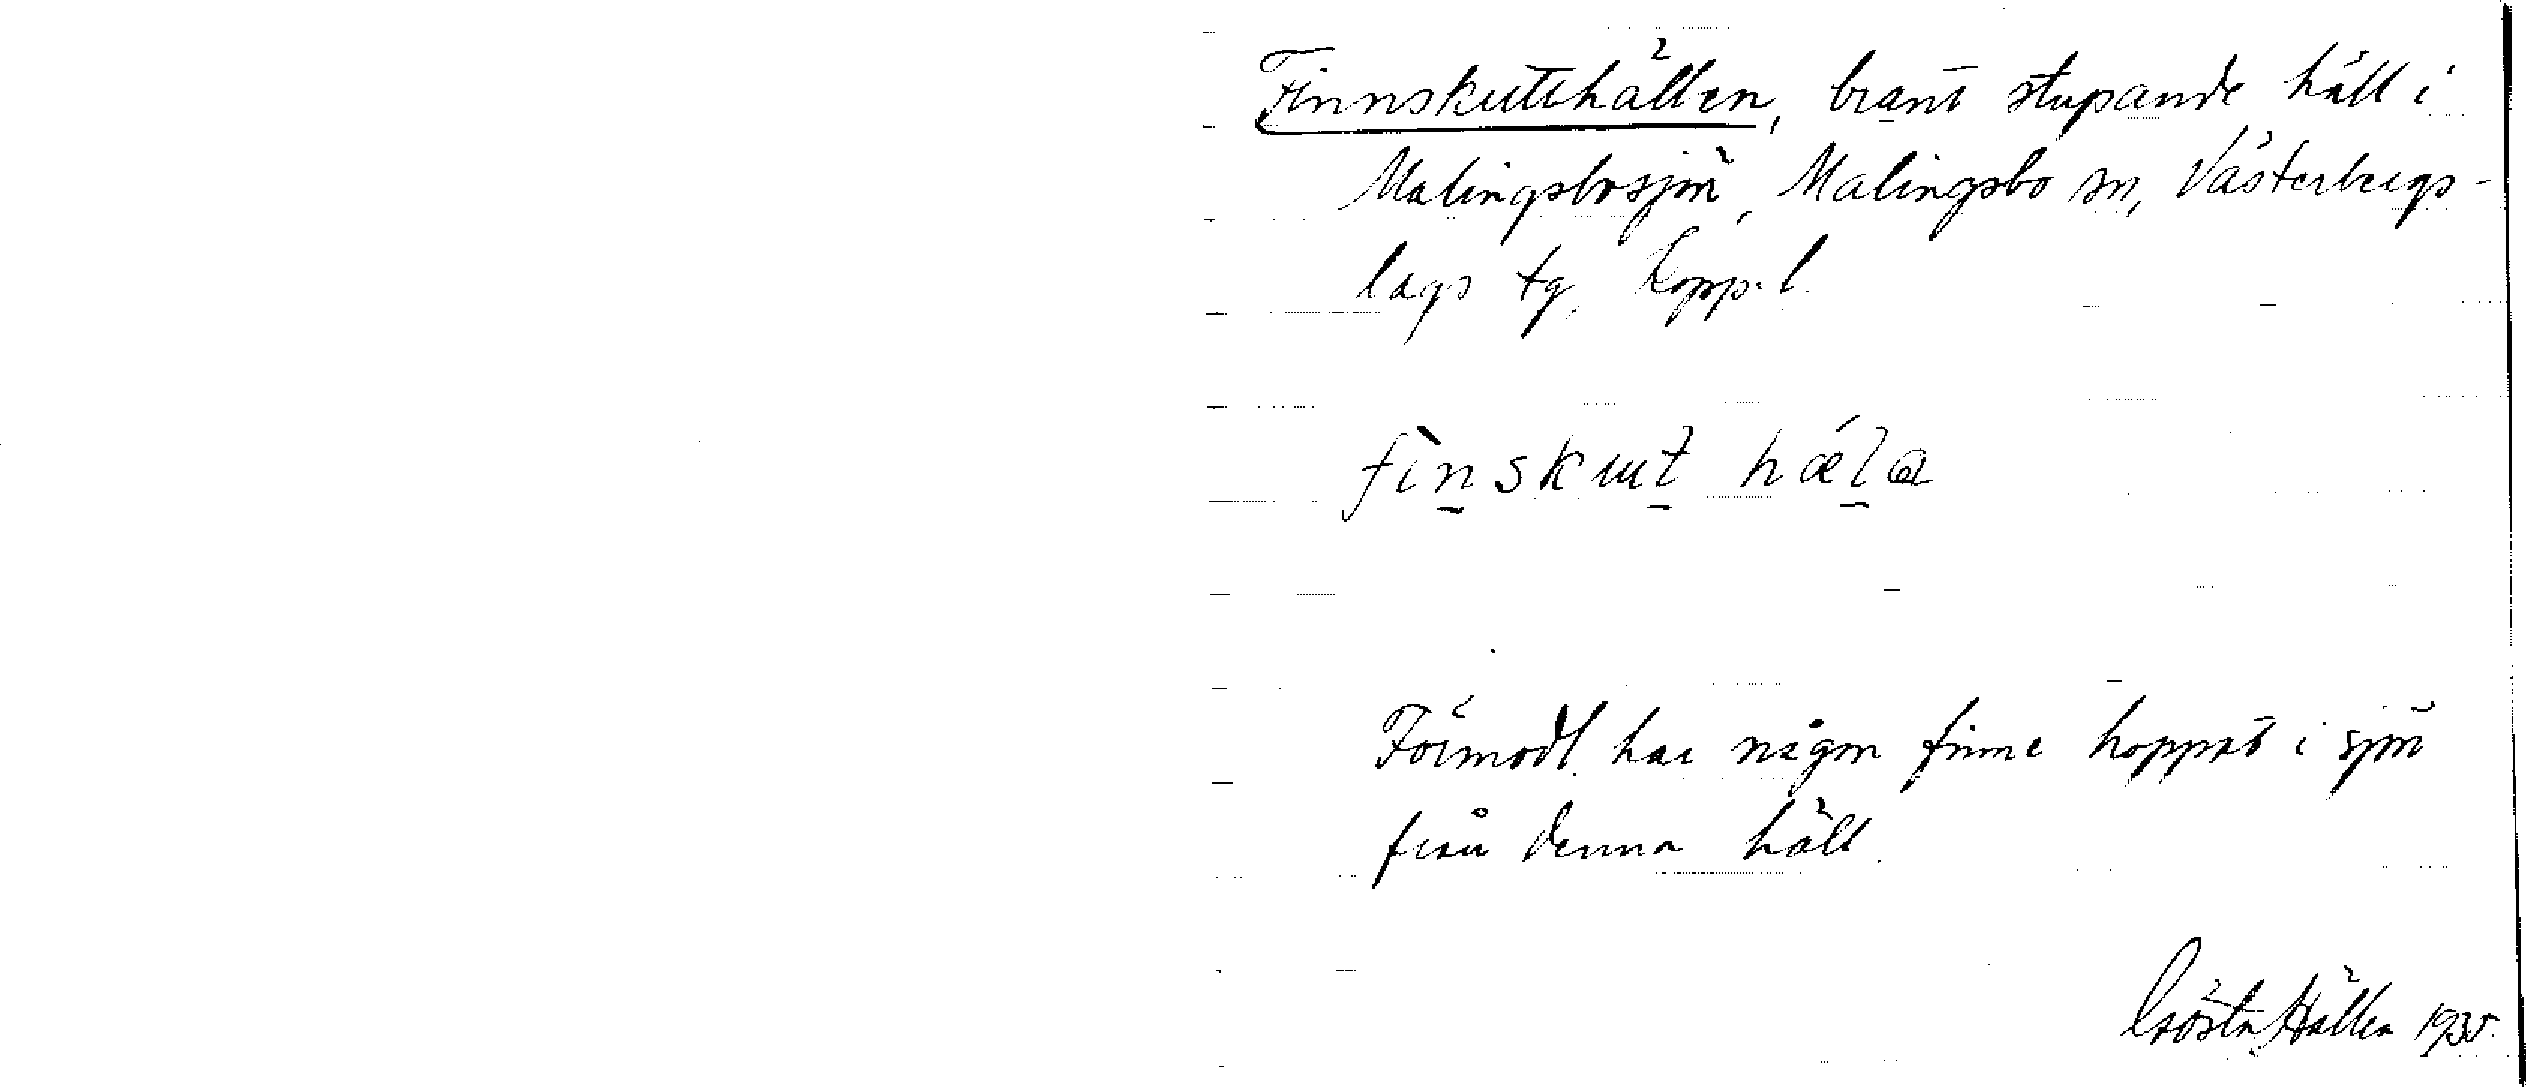 Finnskutthällen, brant stupande häll i
Malingsbosjön, Malingsbo sn, Västerbergs-
lags tg, Kopp. l.
fìnskut hǽla
Förmodl. har någon finne hoppat i sjön
från denna häll.
Gösta Hällen 1935.